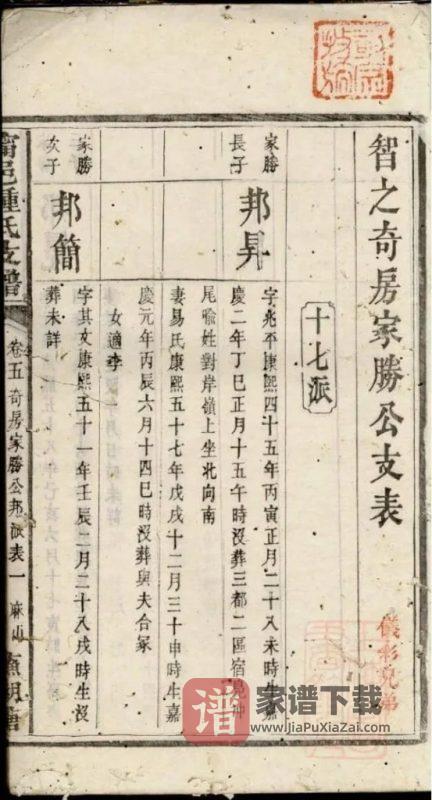 智之奇房家勝公支表
十七派
家勝
長子
邦昇
字兆平康熙四十五年丙寅正月二十八未時生嘉
慶二年丁巳正月十五午時沒葬三都二區宿
尾喻姓對岸嶺上坐北向南
妻易氏康熙五十七年戊戌十二月三十申時生嘉
慶元年丙辰六月十四巳時沒葬與夫合冢
女適李
家勝
次子
邦簡
字其文康熙五十一年壬辰二月二十八戌時生沒
葬未詳
鍾氏支譜
卷五奇房家勝公邦派表一
儀彰兄弟
谱
家谱下载
www.jiaPuXiaZai.com